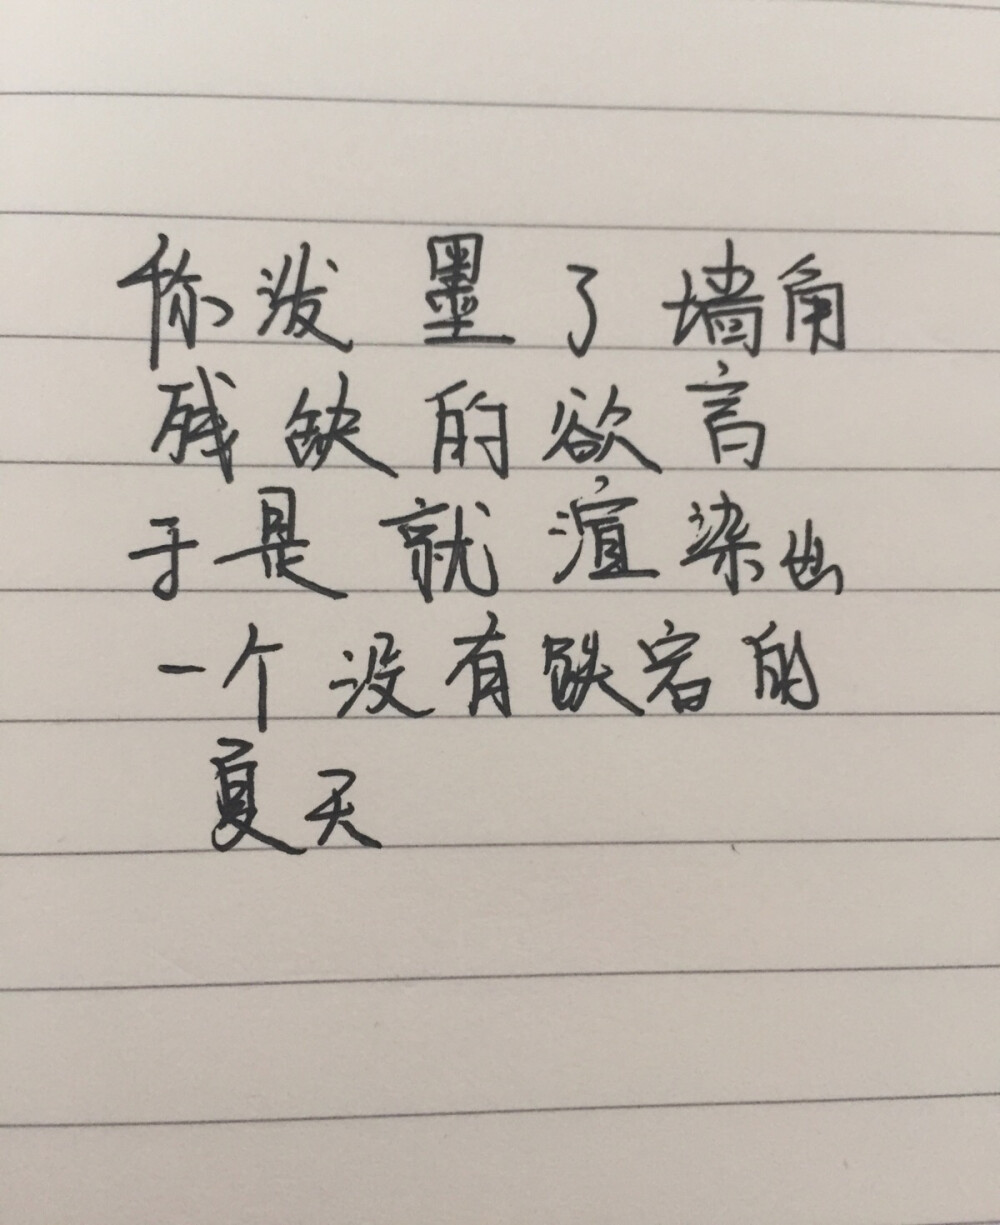 你泼墨了墙角
残缺的欲言
于是就渲染出
一个没有跌宕的
夏天